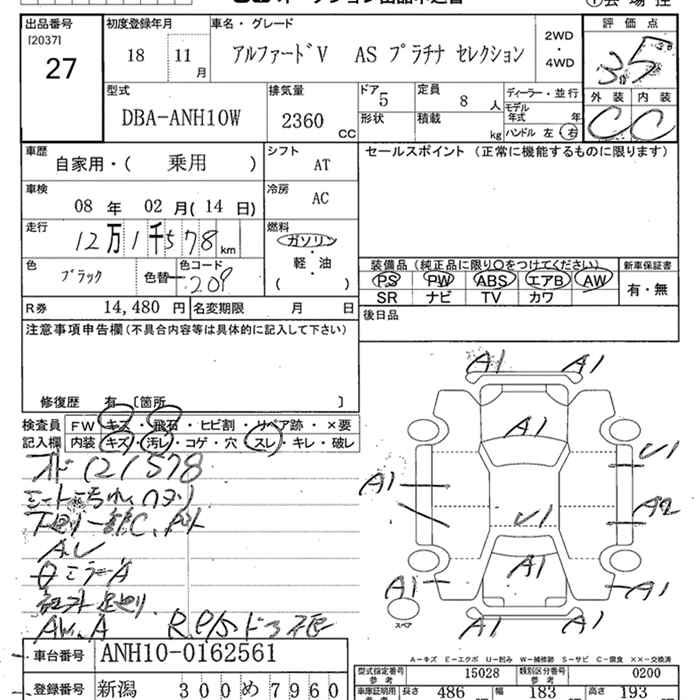 出品番号 初度登録年月 車名・グレード 評価点
[2037]
27
18 11 月 アルファードV AS プラチナ セレクション 2WD・4WD 3.5
外装 内装
C C
型式 排気量 ドア 定員 ディーラー・並行
DBA-ANH10W 2360 CC 5 8 人 モデル年式 年
形状 積載 kg ハンドル 左 右
車歴 シフト セールスポイント (正常に機能するものに限ります)
自家用・( 乗用 ) AT
車検 冷房
08 年 02 月(14 日) AC
走行 燃料
12万1千578 km ガソリン・軽・油
( )
色 色コード 装備品 (純正品に限り○をつけてください) 新車保証書
ブラック 色替 209 PS PW ABS エアB AW 有・無
SR ナビ TV カワ
R券 14,480 円 名変期限 月 日 後日品
注意事項申告欄 (不具合内容等は具体的に記入して下さい)
修復歴 有 [箇所 ]
検査員 FW キズ・飛石・ヒビ割・リペア跡・×要
記入欄 内装 キズ・汚レ・コゲ・穴 スレ・キレ・破レ
121578
A1 A1
A1
U1
A1
A2
U1
A1
A1 A1
A1 A1
スペア
A-キズ E-エクボ U-凹み W-補修跡 S-サビ C-腐食 ××-交換済
車台番号 ANH10-0162561
型式指定番号 15028 類別区分番号 0200
参考 参考
登録番号 新潟 300 め 7960
車庫証明用 長さ 486 幅 183 高さ 193